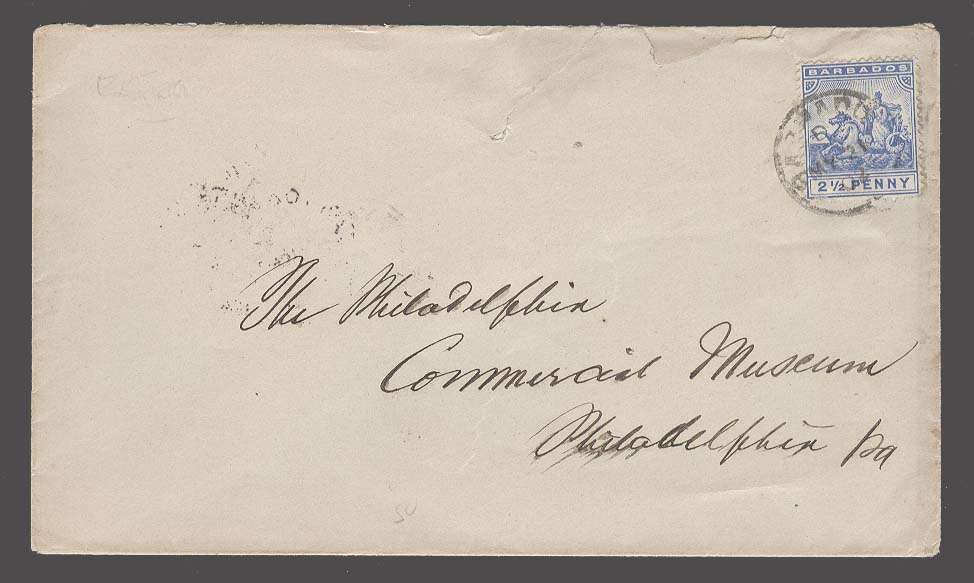 BARBADOS
2½ PENNY
The Philadelphia
Commercial Museum
Philadelphia Pa